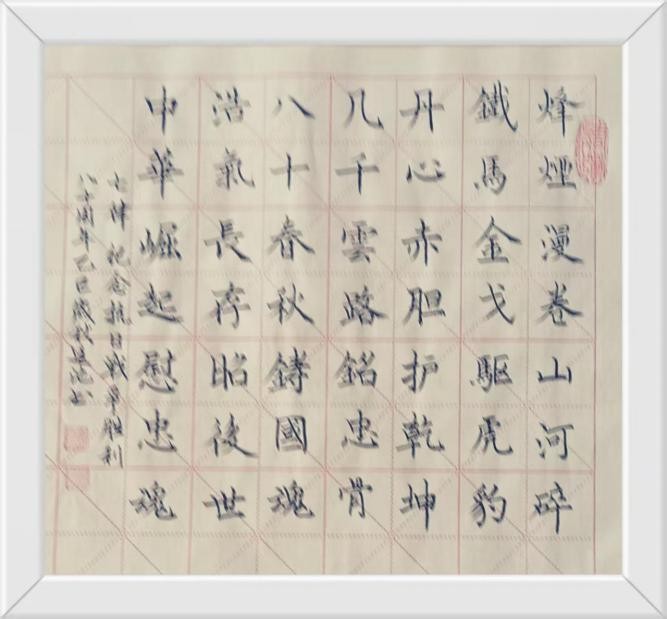 烽煙漫卷山河碎
鐵馬金戈驅虎豹
丹心赤胆护乾坤
几千雲路銘忠骨
八十春秋鑄國魂
浩氣長存昭後世
中華崛起慰忠魂
七律 纪念抗日戰争胜利
八十周年乙巳秋书